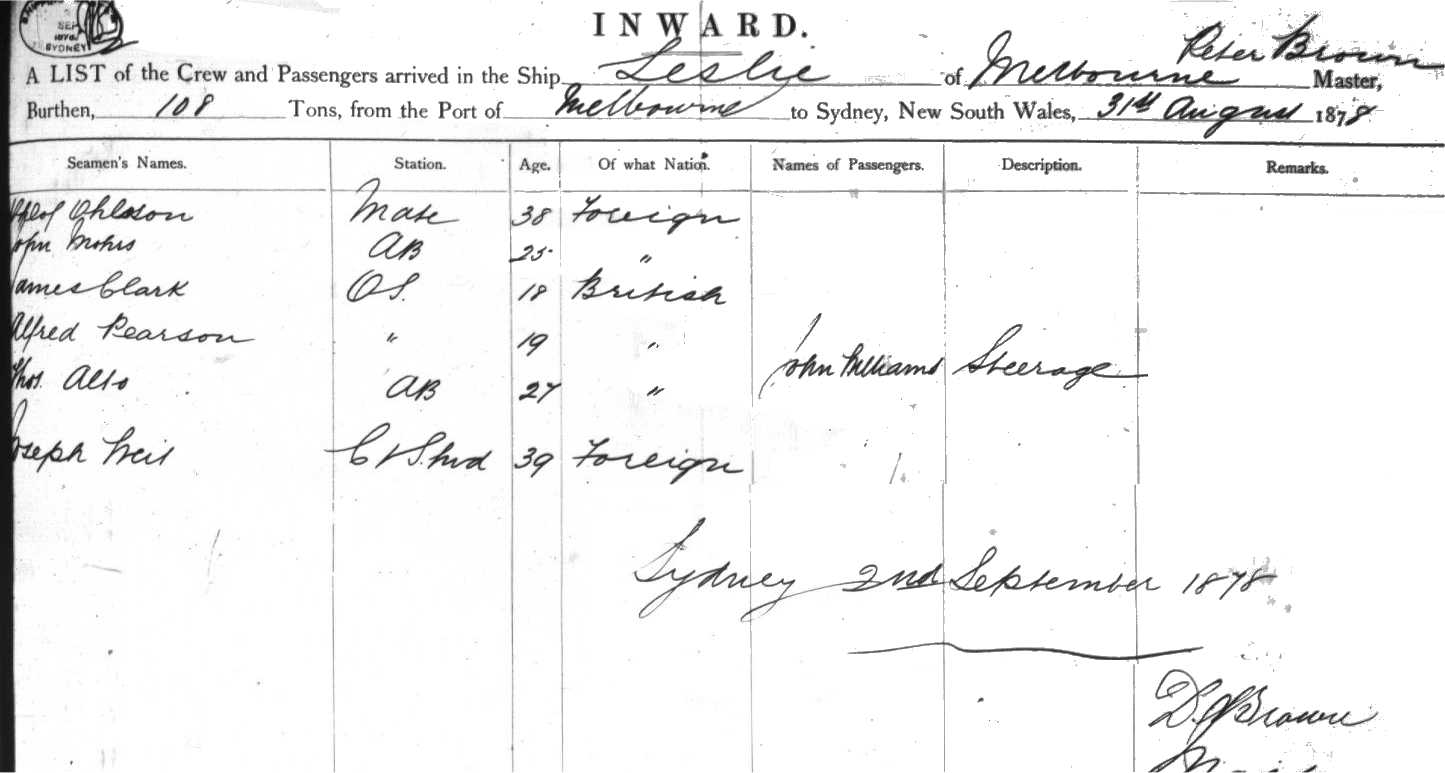 SEP
1878
SYDNEY
INWARD.
Peter Brown
A LIST of the Crew and Passengers arrived in the Ship Leslie of Melbourne Master,
Burthen, 108 Tons, from the Port of Melbourne to Sydney, New South Wales, 31st August 1878
Seamen's Names. Station. Age. Of what Nation. Names of Passengers. Description. Remarks.
Ohlsson Mate 38 Foreign
John Mohrs AB 25 "
James Clark OS. 18 British
Alfred Pearson " 19 "
John Williams Steerage
Thos. Alto AB 27 "
Joseph Weil C & Stwd 39 Foreign
Sydney 2nd September 1878
Brown